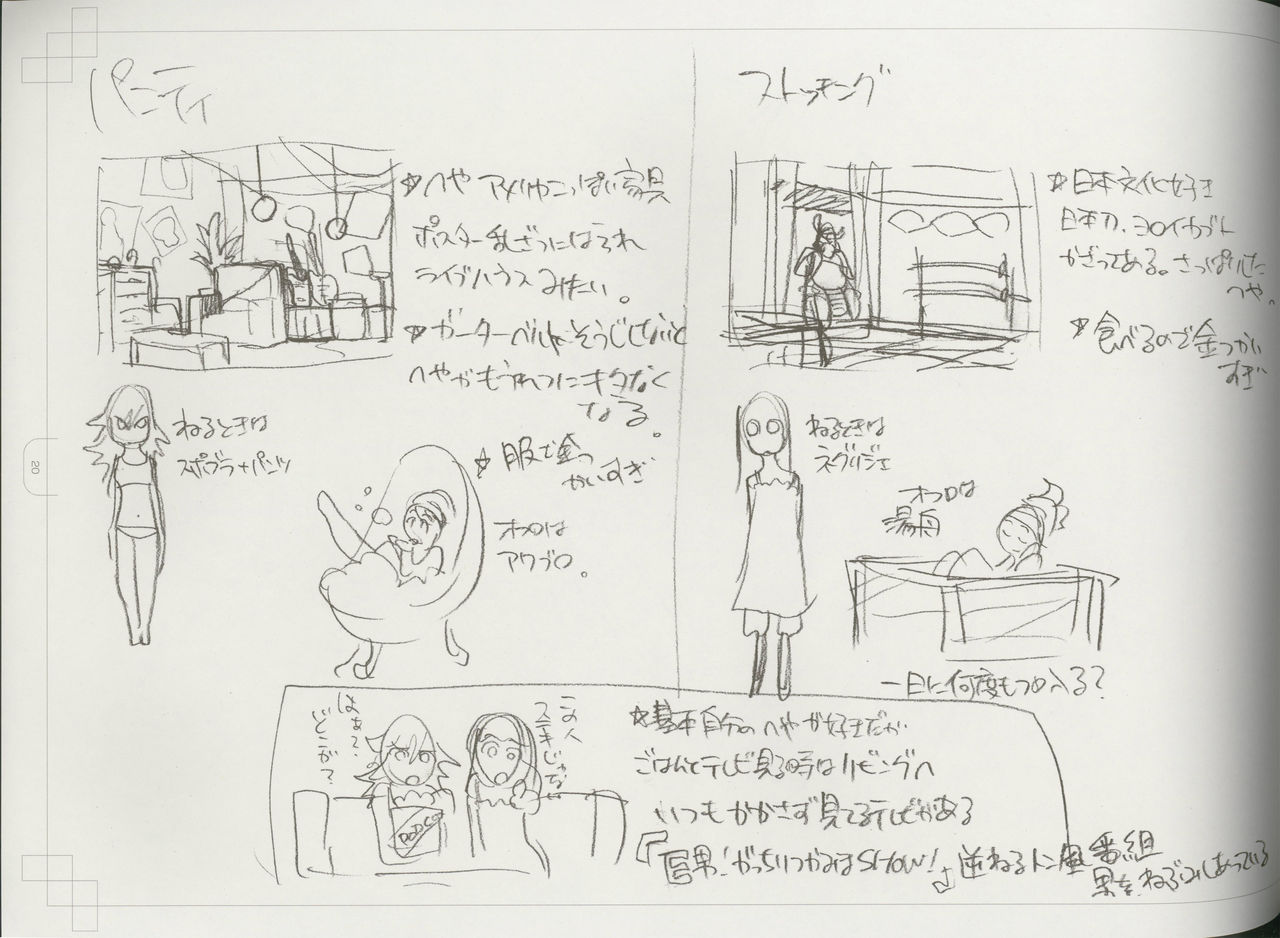 パンティ
☆へや アメリカンっぽい家具
ポスター乱ざつにはられ
ライブハウスみたい。
☆ガーターベルトがそうじしないと
へやがもうれつにキタなく
なる。
ねるときは
スポブラ+パンツ
☆服で金つ
かいすぎ
オフロは
アワブロ。
ストッキング
☆日本文化好き
日本刀、ヨロイカブト
かざってある。さっぱりした
へや。
☆食べるので金つかい
すぎ
ねるときは
ネグリジェ
オフロは
湯舟
一日に何度もつかる?
この人
ステキじゃない
はぁ?
どこが?
POPCO
☆基本自分のへやが好きだが
ごはんとテレビ見る時はリビングへ
いつもかかさず見てるテレビがある
男!がっちりつかみはSHOW!』逆ねるトン風番組
男をねぶみしあっている
20